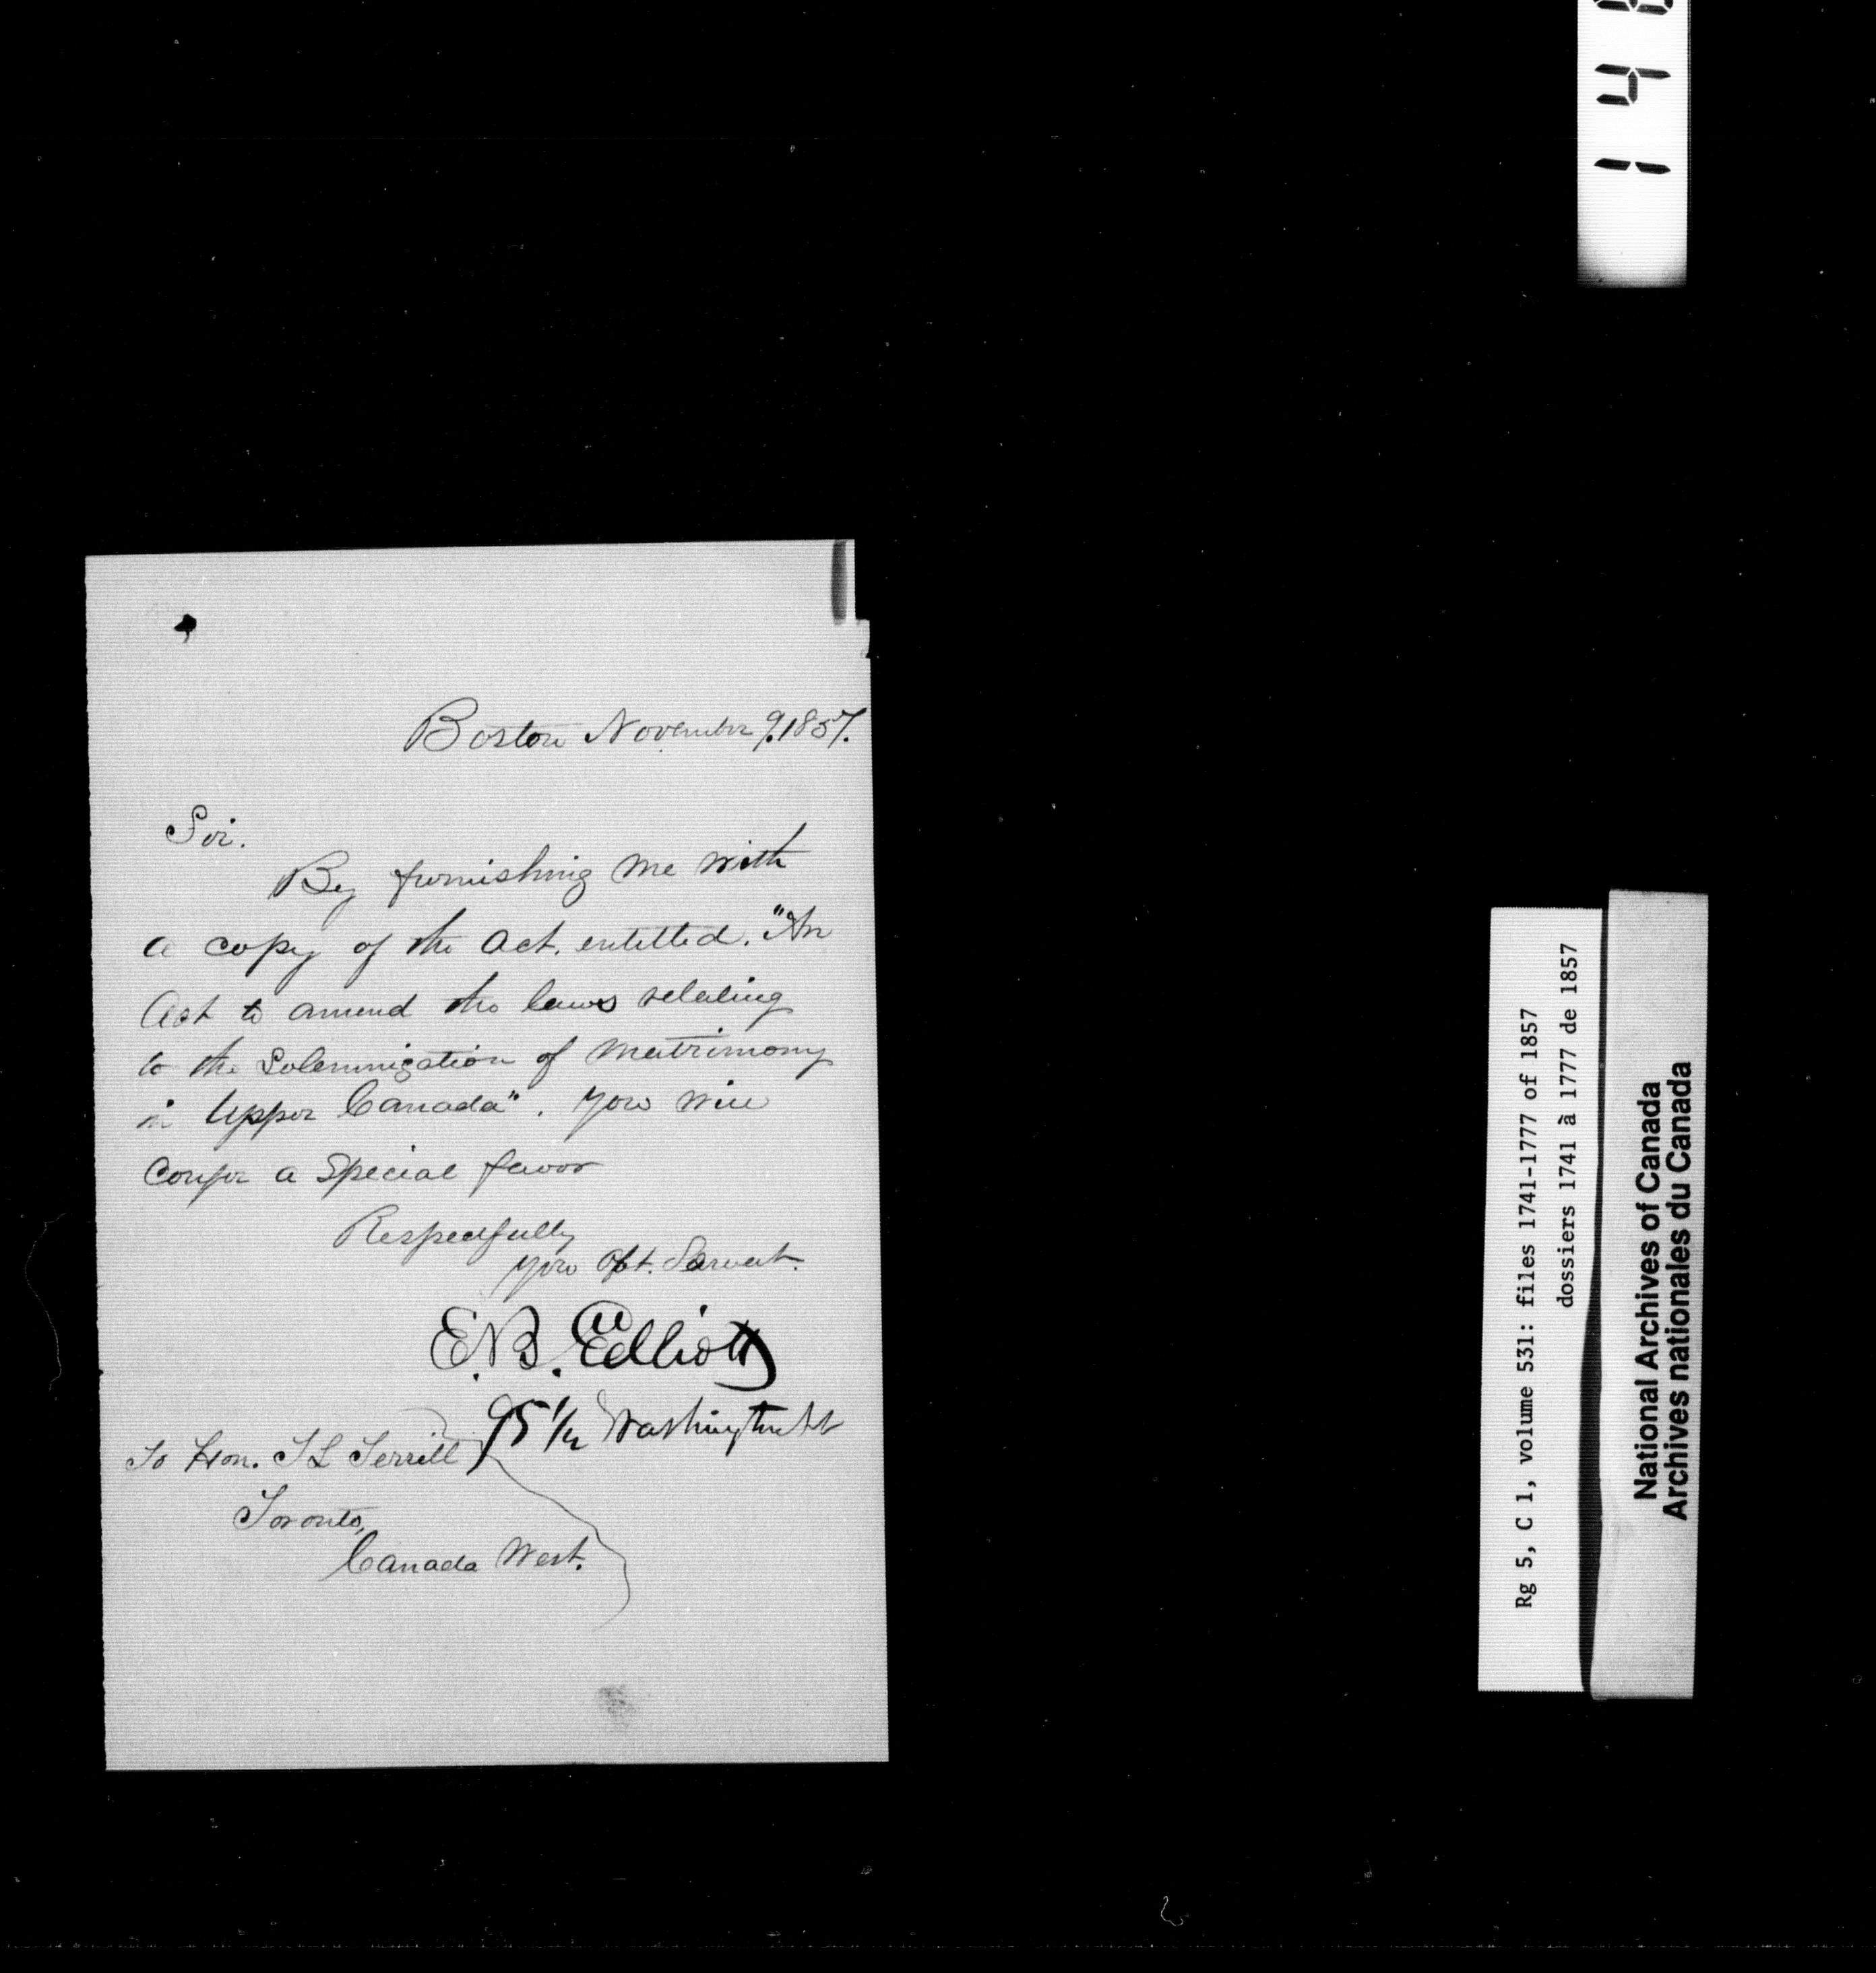 Boston November 9. 1857.
Sir.
By furnishing me with
a copy of the Act. entitled. "An
Act to amend the laws relating
to the Solemnization of Matrimony
in Upper Canada". you will
Confer a Special favor
Respectfully
your Obt. Servant.
E.B. Elliott
95 1/2 Washington St
To Hon. T L Terrill
Toronto,
Canada West.
Rg 5, C 1, volume 531: files 1741-1777 of 1857
dossiers 1741 à 1777 de 1857
National Archives of Canada
Archives nationales du Canada
1 4